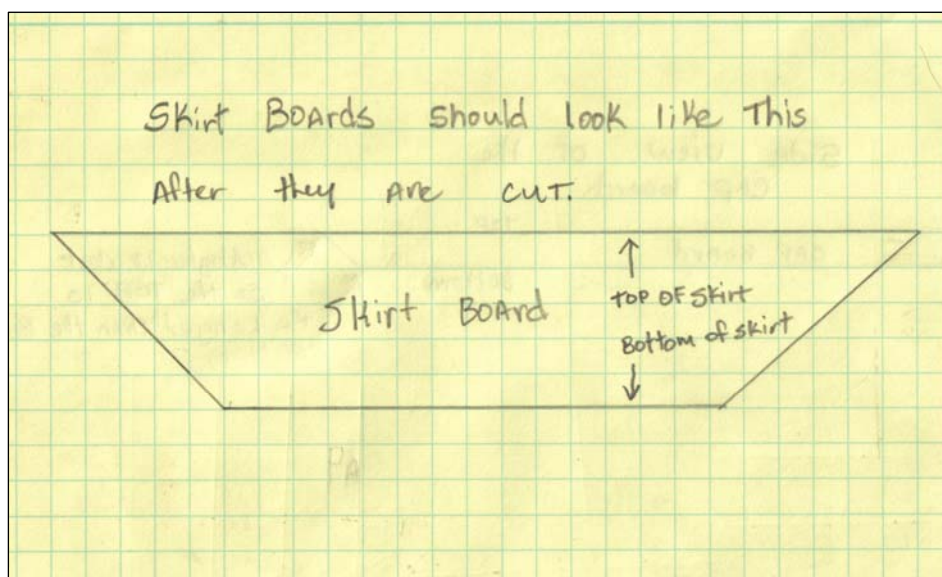 Skirt BOArds should look like This
After they are CUT.
Skirt BOArd
TOP OF Skirt
Bottom of skirt